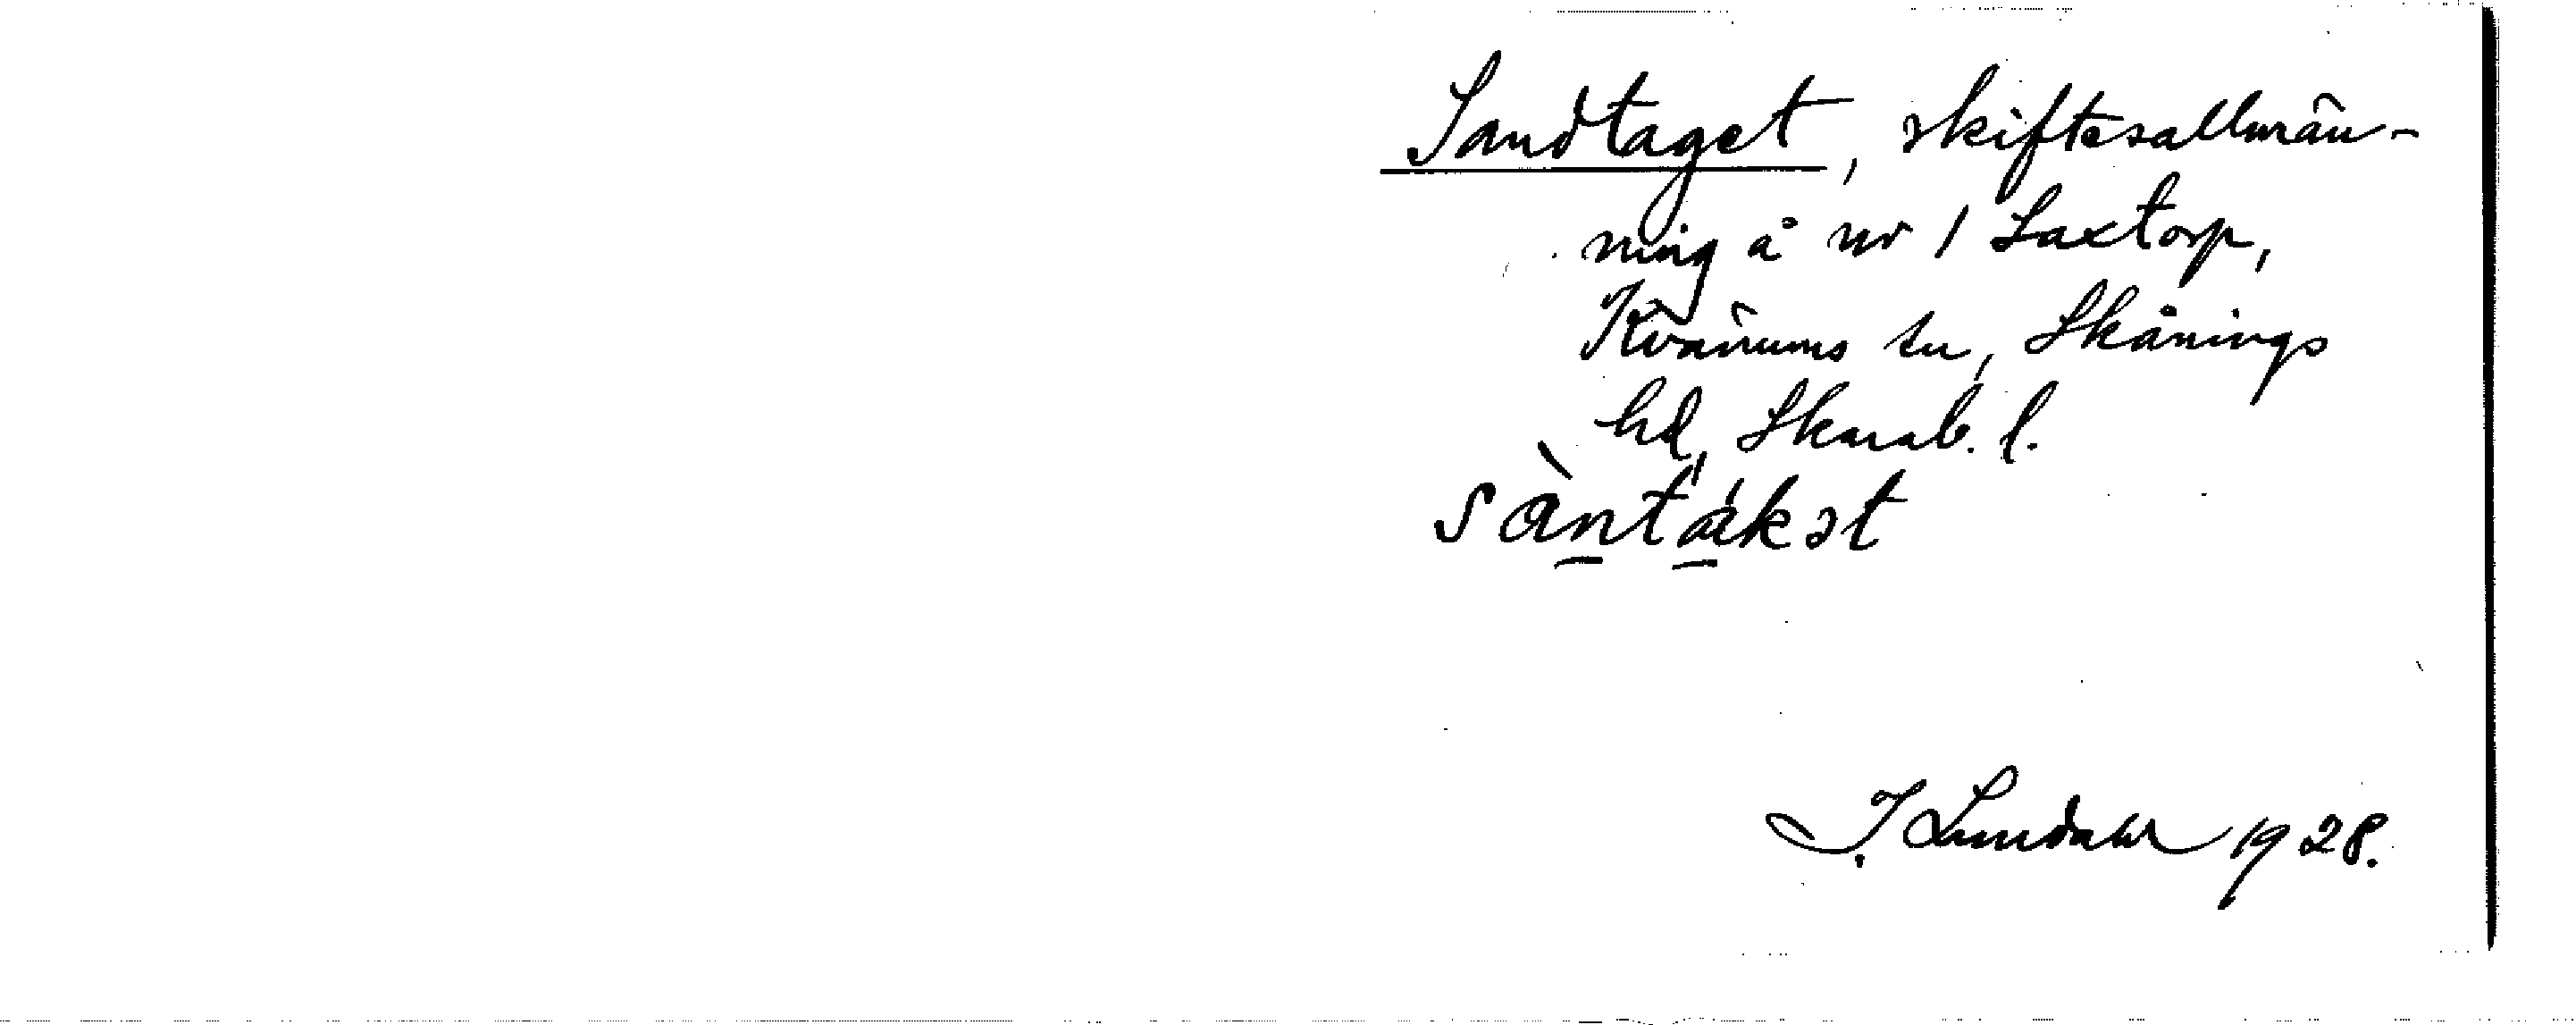 Sandtaget, skiftesallmän-
ning å nr 1 Laxtorp,
Kvänums sn, Skånings
hd, Skarab. l.
sàntákət
I. Lundahl 1928.